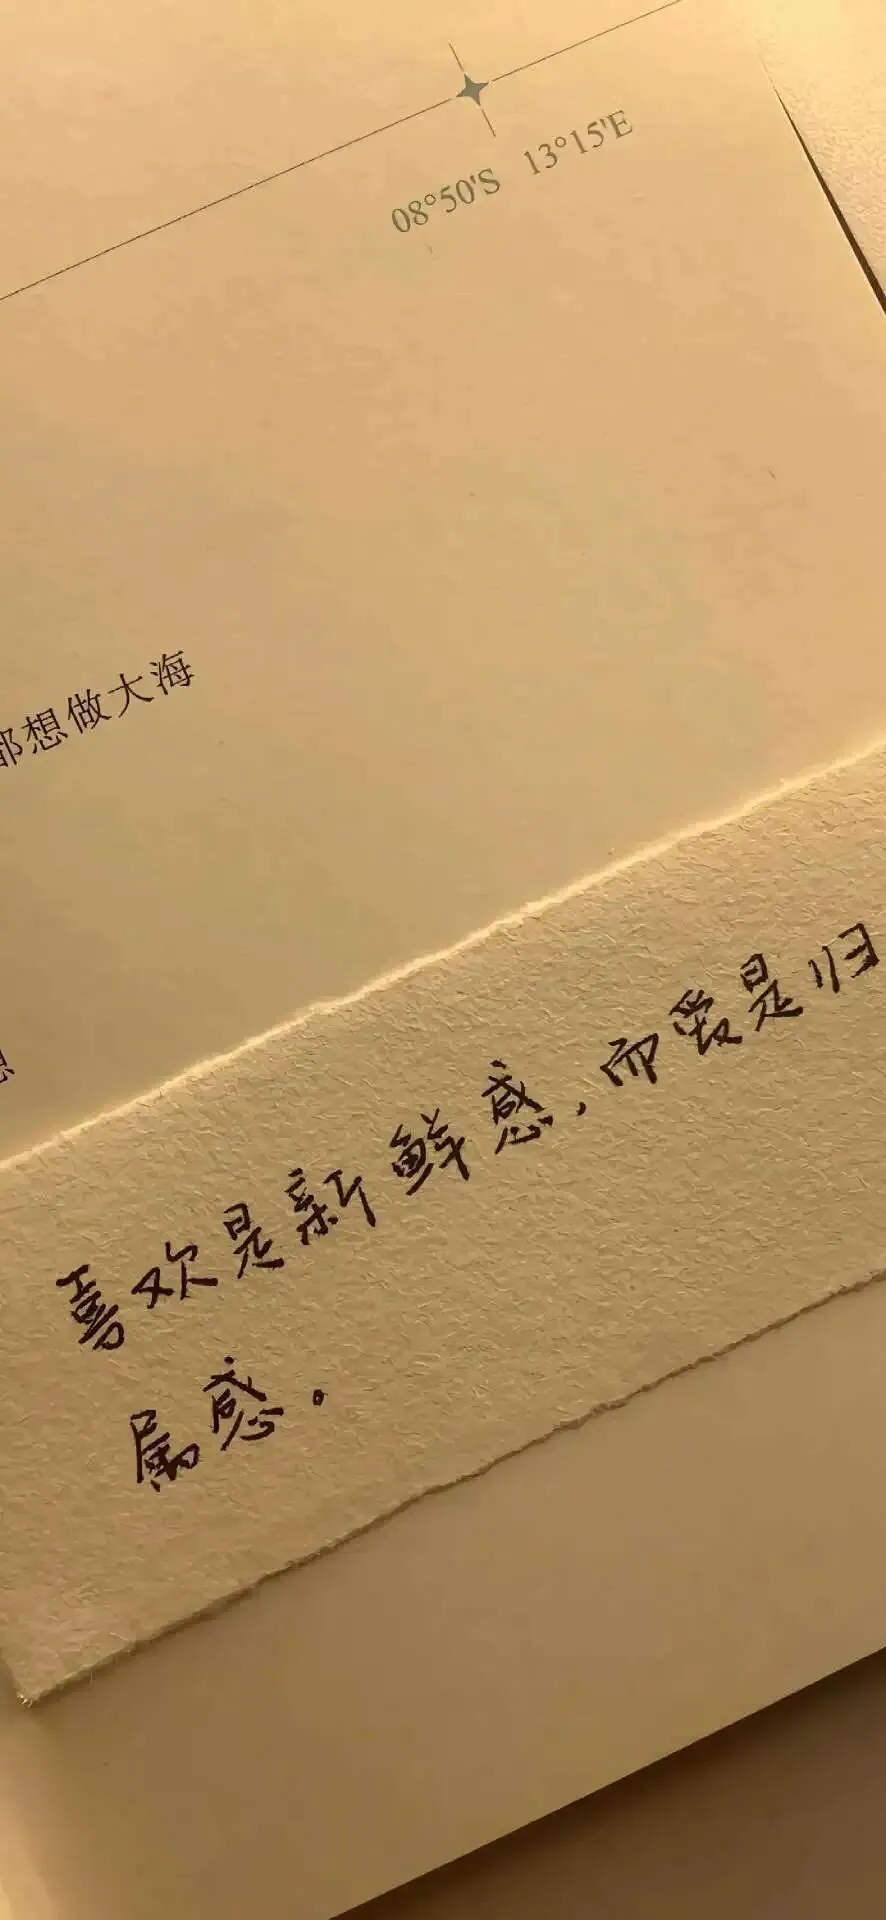 08°50'S 13°15'E
都想做大海
想
喜欢是新鲜感,而爱是归
属感。